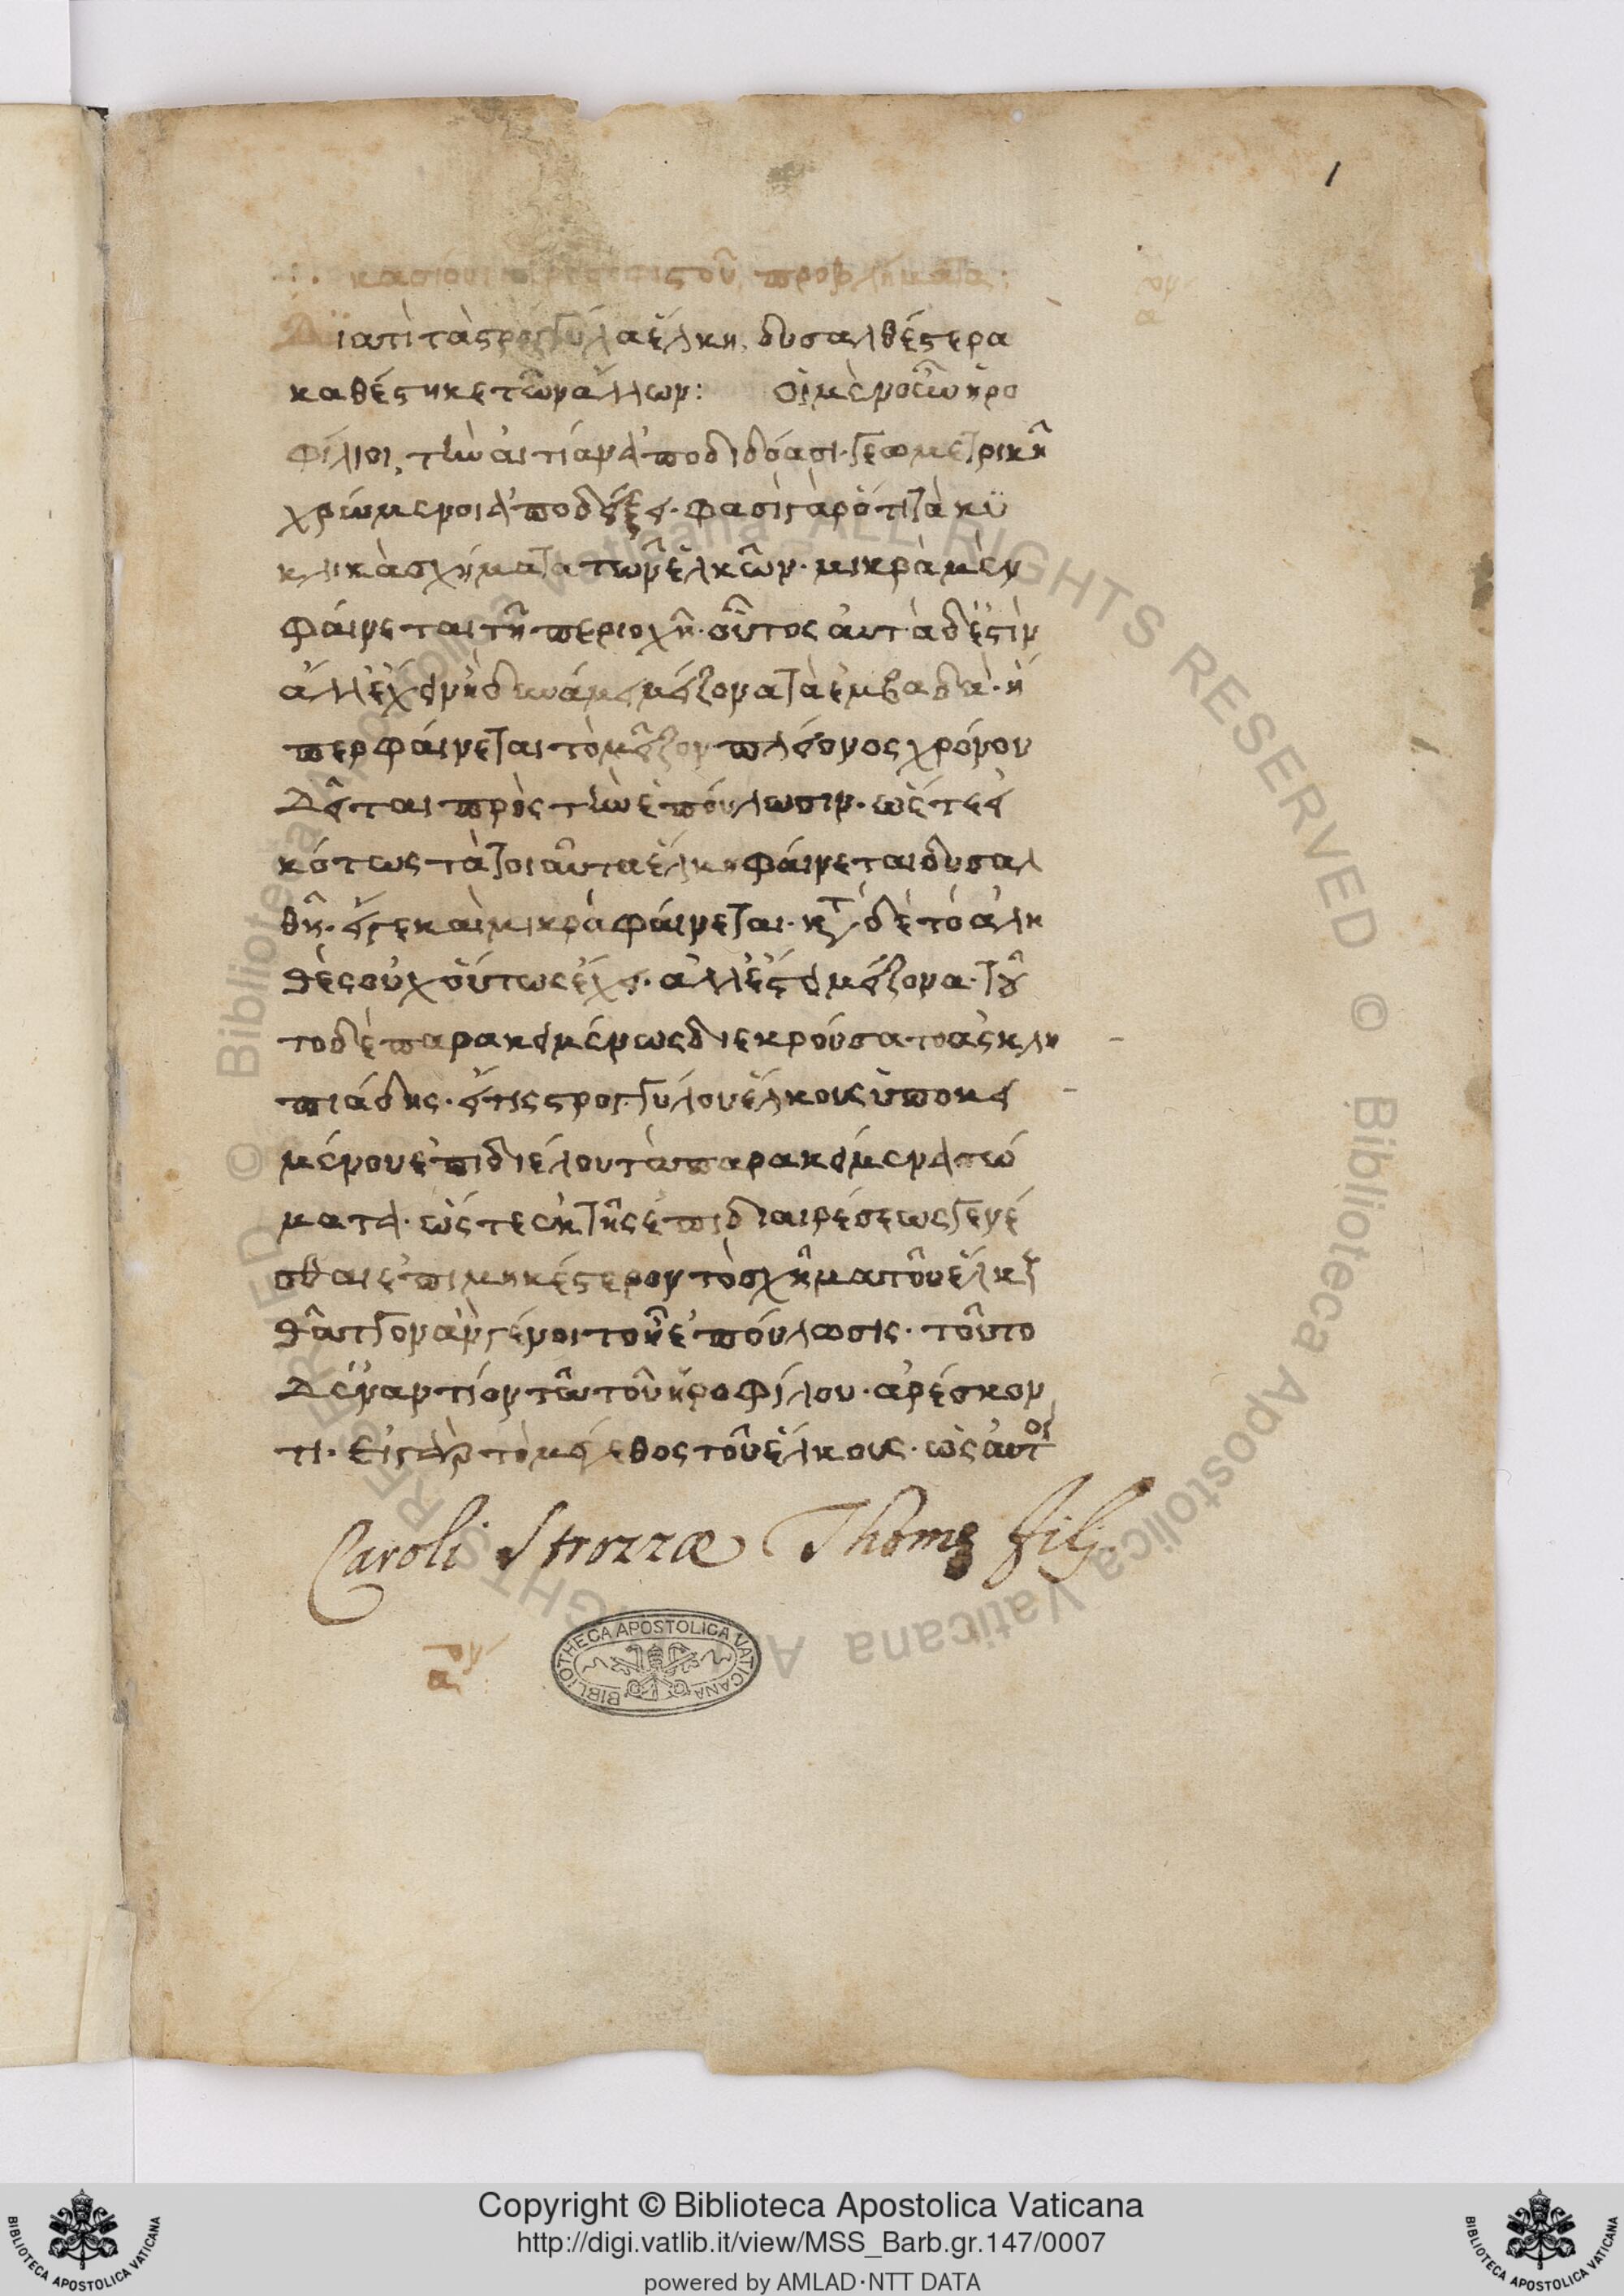 1
κασίου ἰατροσοφιστοῦ προβλήματα:
Διατί τὰ στρογγύλα ἕλκη, δυσαλθέστερα
καθέστηκε τῶν ἄλλων: Οἱ μὲν οὖν ἡρο
φίλιοι, τὴν αἰτίαν ἀποδιδόασι γεωμετρικῆ
χρώμενοι ἀποδείξει. φασὶ γὰρ ὅτι τὰ κυ
κλικὰ σχήματα τῶν ἑλκῶν. μικρὰ μὲν
φαίνεται τῆ περιοχῆ. οὗτος αὐτὰ δέ ἐστιν
ἀλλ' ἔχειν ἡ δυνάμει μείζονα τὰ ἐμβαδά. ἤ
περ φαίνεται τὸ μεῖζον πλείονος χρόνου
Δεῖται πρὸς τὴν ἐπούλωσιν. ὥστε εἰ
κότως τὰ τοιαῦτα ἕλκη φαίνεται δυσαλ
θῆ. εἴγε καὶ μικρὰ φαίνεται. κατὰ δὲ τὸ ἀλη
θὲς οὐχ οὕτως ἔχει. ἀλλ' ἔστι μείζονα. τοῦ
το δὲ παρακειμένως διεκρούσατο ἀσκλη
πιάδης. εἴ τις στρογγύλου ἕλκους ὑποκει
μένου ἐπιδιέλου τὰ παρακείμενα σώ
ματα. ὥστε ἐκ τῆς ἐπιδιαιρέσεως γενέ
σθαι ἐπιμηκέστερον τὸ σχῆμα τοῦ ἕλκους
θᾶττον ἂν γένοιτο ἡ ἐπούλωσις. τοῦτο
Δ' ἐναντίον τῶ τοῦ ἡροφίλου. ἀρέσκον
τι. Εἰ γὰρ τὸ μέγεθος τοῦ ἕλκους. ὡς αὐτοὶ
Caroli Strozzæ Thomę filij.
BIBLIOTHECA APOSTOLICA VATICANA
© Biblioteca Apostolica Vaticana ALL RIGHTS RESERVED © Biblioteca Apostolica Vaticana ALL RIGHTS RESERVED
Copyright © Biblioteca Apostolica Vaticana
http://digi.vatlib.it/view/MSS_Barb.gr.147/0007
powered by AMLAD·NTT DATA
BIBLIOTECA APOSTOLICA VATICANA
BIBLIOTECA APOSTOLICA VATICANA